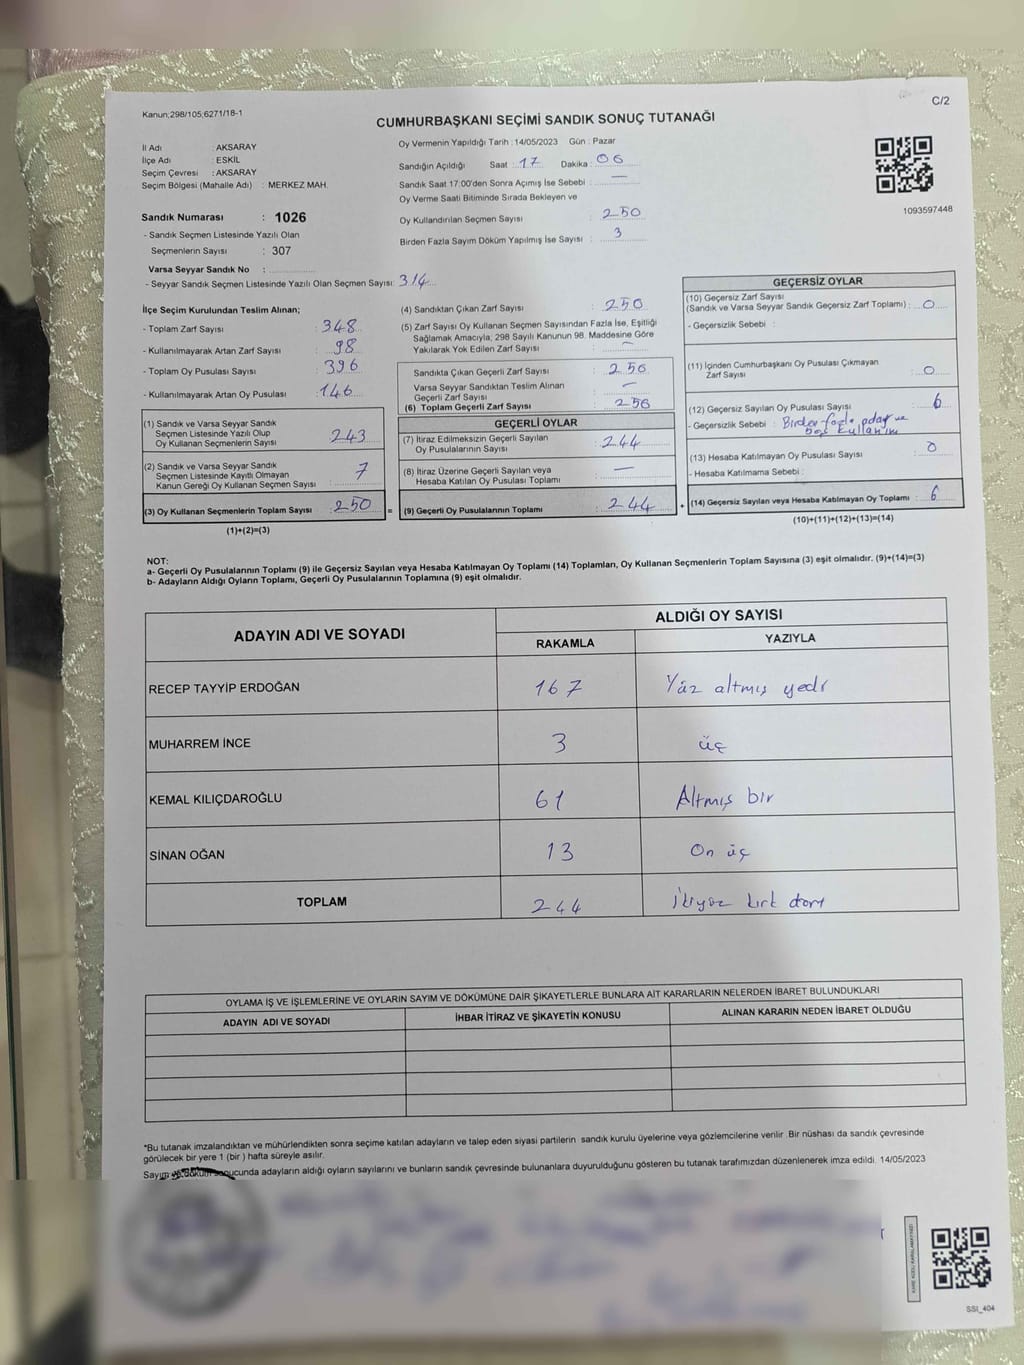 C/2
Kanun;298/105;6271/18-1
CUMHURBAŞKANI SEÇİMİ SANDIK SONUÇ TUTANAĞI
İl Adı : AKSARAY
İlçe Adı : ESKİL
Seçim Çevresi : AKSARAY
Seçim Bölgesi (Mahalle Adı) : MERKEZ MAH.
Sandık Numarası : 1026
- Sandık Seçmen Listesinde Yazılı Olan
Seçmenlerin Sayısı : 307
Varsa Seyyar Sandık No :
- Seyyar Sandık Seçmen Listesinde Yazılı Olan Seçmen Sayısı: 314
Oy Vermenin Yapıldığı Tarih : 14/05/2023 Gün : Pazar
Sandığın Açıldığı Saat : 17 Dakika : 06
Sandık Saat 17:00'den Sonra Açımış İse Sebebi : —
Oy Verme Saati Bitiminde Sırada Bekleyen ve
Oy Kullandırılan Seçmen Sayısı : 250
Birden Fazla Sayım Döküm Yapılmış İse Sayısı : 3
1093597448
İlçe Seçim Kurulundan Teslim Alınan;
- Toplam Zarf Sayısı : 348
- Kullanılmayarak Artan Zarf Sayısı : 98
- Toplam Oy Pusulası Sayısı : 396
- Kullanılmayarak Artan Oy Pusulası : 146
(1) Sandık ve Varsa Seyyar Sandık
Seçmen Listesinde Yazılı Olup
Oy Kullanan Seçmenlerin Sayısı : 243
(2) Sandık ve Varsa Seyyar Sandık
Seçmen Listesinde Kayıtlı Olmayan
Kanun Gereği Oy Kullanan Seçmen Sayısı : 7
(3) Oy Kullanan Seçmenlerin Toplam Sayısı : 250 =
(1)+(2)=(3)
(4) Sandıktan Çıkan Zarf Sayısı : 250
(5) Zarf Sayısı Oy Kullanan Seçmen Sayısından Fazla İse, Eşitliği
Sağlamak Amacıyla; 298 Sayılı Kanunun 98. Maddesine Göre
Yakılarak Yok Edilen Zarf Sayısı : —
Sandıkta Çıkan Geçerli Zarf Sayısı : 250
Varsa Seyyar Sandıktan Teslim Alınan
Geçerli Zarf Sayısı : —
(6) Toplam Geçerli Zarf Sayısı : 250
GEÇERLİ OYLAR
(7) İtiraz Edilmeksizin Geçerli Sayılan
Oy Pusulalarının Sayısı : 244
(8) İtiraz Üzerine Geçerli Sayılan veya
Hesaba Katılan Oy Pusulası Toplamı : —
(9) Geçerli Oy Pusulalarının Toplamı : 244 +
GEÇERSİZ OYLAR
(10) Geçersiz Zarf Sayısı
(Sandık ve Varsa Seyyar Sandık Geçersiz Zarf Toplamı) : 0
- Geçersizlik Sebebi :
(11) İçinden Cumhurbaşkanı Oy Pusulası Çıkmayan
Zarf Sayısı : 0
(12) Geçersiz Sayılan Oy Pusulası Sayısı : 6
- Geçersizlik Sebebi : Birden fazla aday ve
boş kullanım
(13) Hesaba Katılmayan Oy Pusulası Sayısı : 0
- Hesaba Katılmama Sebebi :
(14) Geçersiz Sayılan veya Hesaba Katılmayan Oy Toplamı : 6
(10)+(11)+(12)+(13)=(14)
NOT:
a- Geçerli Oy Pusulalarının Toplamı (9) ile Geçersiz Sayılan veya Hesaba Katılmayan Oy Toplamı (14) Toplamları, Oy Kullanan Seçmenlerin Toplam Sayısına (3) eşit olmalıdır. (9)+(14)=(3)
b- Adayların Aldığı Oyların Toplamı, Geçerli Oy Pusulalarının Toplamına (9) eşit olmalıdır.
ADAYIN ADI VE SOYADI
ALDIĞI OY SAYISI
RAKAMLA YAZIYLA
RECEP TAYYİP ERDOĞAN 167 Yüz altmış yedi
MUHARREM İNCE 3 üç
KEMAL KILIÇDAROĞLU 61 Altmış bir
SİNAN OĞAN 13 On üç
TOPLAM 244 İkiyüz kırk dört
OYLAMA İŞ VE İŞLEMLERİNE VE OYLARIN SAYIM VE DÖKÜMÜNE DAİR ŞİKAYETLERLE BUNLARA AİT KARARLARIN NELERDEN İBARET BULUNDUKLARI
ADAYIN ADI VE SOYADI İHBAR İTİRAZ VE ŞİKAYETİN KONUSU ALINAN KARARIN NEDEN İBARET OLDUĞU
*Bu tutanak imzalandıktan ve mühürlendikten sonra seçime katılan adayların ve talep eden siyasi partilerin sandık kurulu üyelerine veya gözlemcilerine verilir .Bir nüshası da sandık çevresinde
görülecek bir yere 1 (bir ) hafta süreyle asılır.
Sayım ve döküm sonucunda adayların aldığı oyların sayılarını ve bunların sandık çevresinde bulunanlara duyurulduğunu gösteren bu tutanak tarafımızdan düzenlenerek imza edildi. 14/05/2023
SSI_404